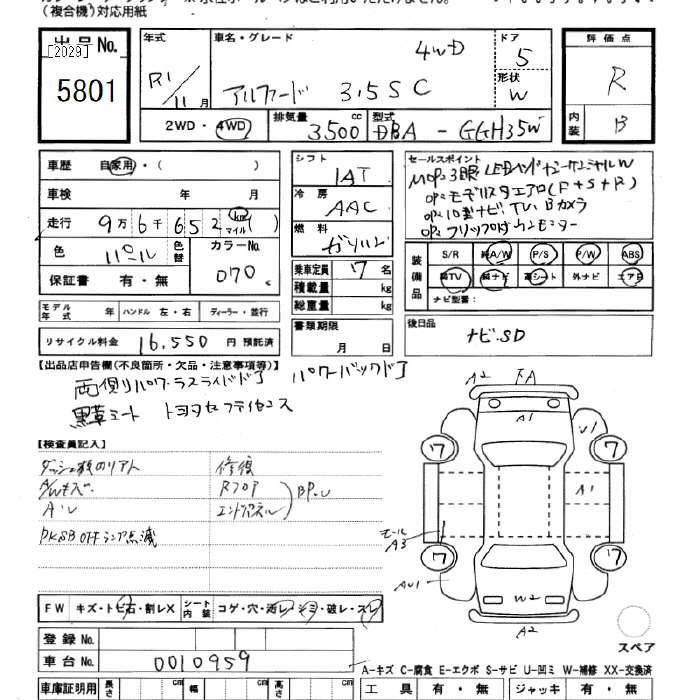 (複合機)対応用紙
出品No.
[2029]
5801
年式
R1/11月
車名・グレード
4WD
アルファード 3.5 S C
ドア
5
形状
W
評価点
R
内装
B
2WD・4WD
排気量
3500 cc
型式
DBA - GGH35W
車歴 自家用・( )
車検 年 月
走行 9万6千652 km マイル ( )
色 パール
色替
カラーNo.
070
保証書 有・無
モデル年式 年 ハンドル 左・右 ディーラー・並行
リサイクル料金 16,550 円 預託済
シフト
IAT
冷房
AAC
燃料
ガソリン
乗車定員 7名
積載量 kg
総重量 kg
書類期限
月 日
セールスポイント
OP: モデリスタエアロ(F+S+R)
OP: 10型ナビ TV、Bカメラ
OP: フリップダウンモニター
装備品
S/R 純A/W P/S P/W ABS
純TV 純ナビ 革シート 外ナビ エアB
ナビ型番:
後日品
ナビSD
【出品店申告欄(不良箇所・欠品・注意事項等)】
両側パワースライドドア パワーバックドア
黒革シート トヨタセーフティセンス
【検査員記入】
修復
Rフロア
エンドパネル
BP.U
PKSB OFF ランプ点滅
A2 FA
A1
U1
7 7
A1
モール
A3
7 7
AU1
W2
A2
スペア
FW キズ・トビ石・割レX シート内装 コゲ・穴・汚レ・シミ・破レ・スレ
登録No.
車台No. 0010959
A-キズ C-腐食 E-エクボ S-サビ U-凹ミ W-補修 XX-交換済
車庫証明用 長さ cm 幅 cm 高さ cm
工具 有・無 ジャッキ 有・無